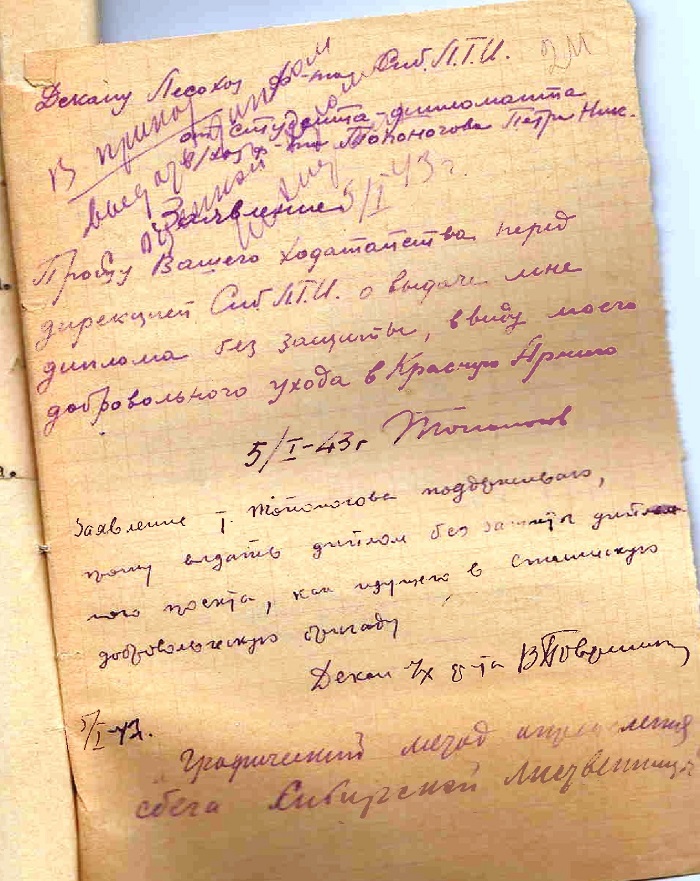 Декану Лесохоз ф-та Сиб.Л.Т.И.
от студента-дипломанта
л/хоз ф-та Топоногова Петра Ник.
В приказ
выдать диплом
5/I 43 г.
Заявление
Прошу Вашего ходатайства перед
дирекцией Сиб.Л.Т.И. о выдаче мне
диплома без защиты, ввиду моего
добровольного ухода в Красную Армию
5/I-43 г
Заявление т. Топоногова поддерживаю,
прошу выдать диплом без защиты диплом
ного проекта, как идущего в сталинскую
добровольческую бригаду
Декан л/х ф-та
5/I-43.
"Графический метод определения
сбега Сибирской лиственницы